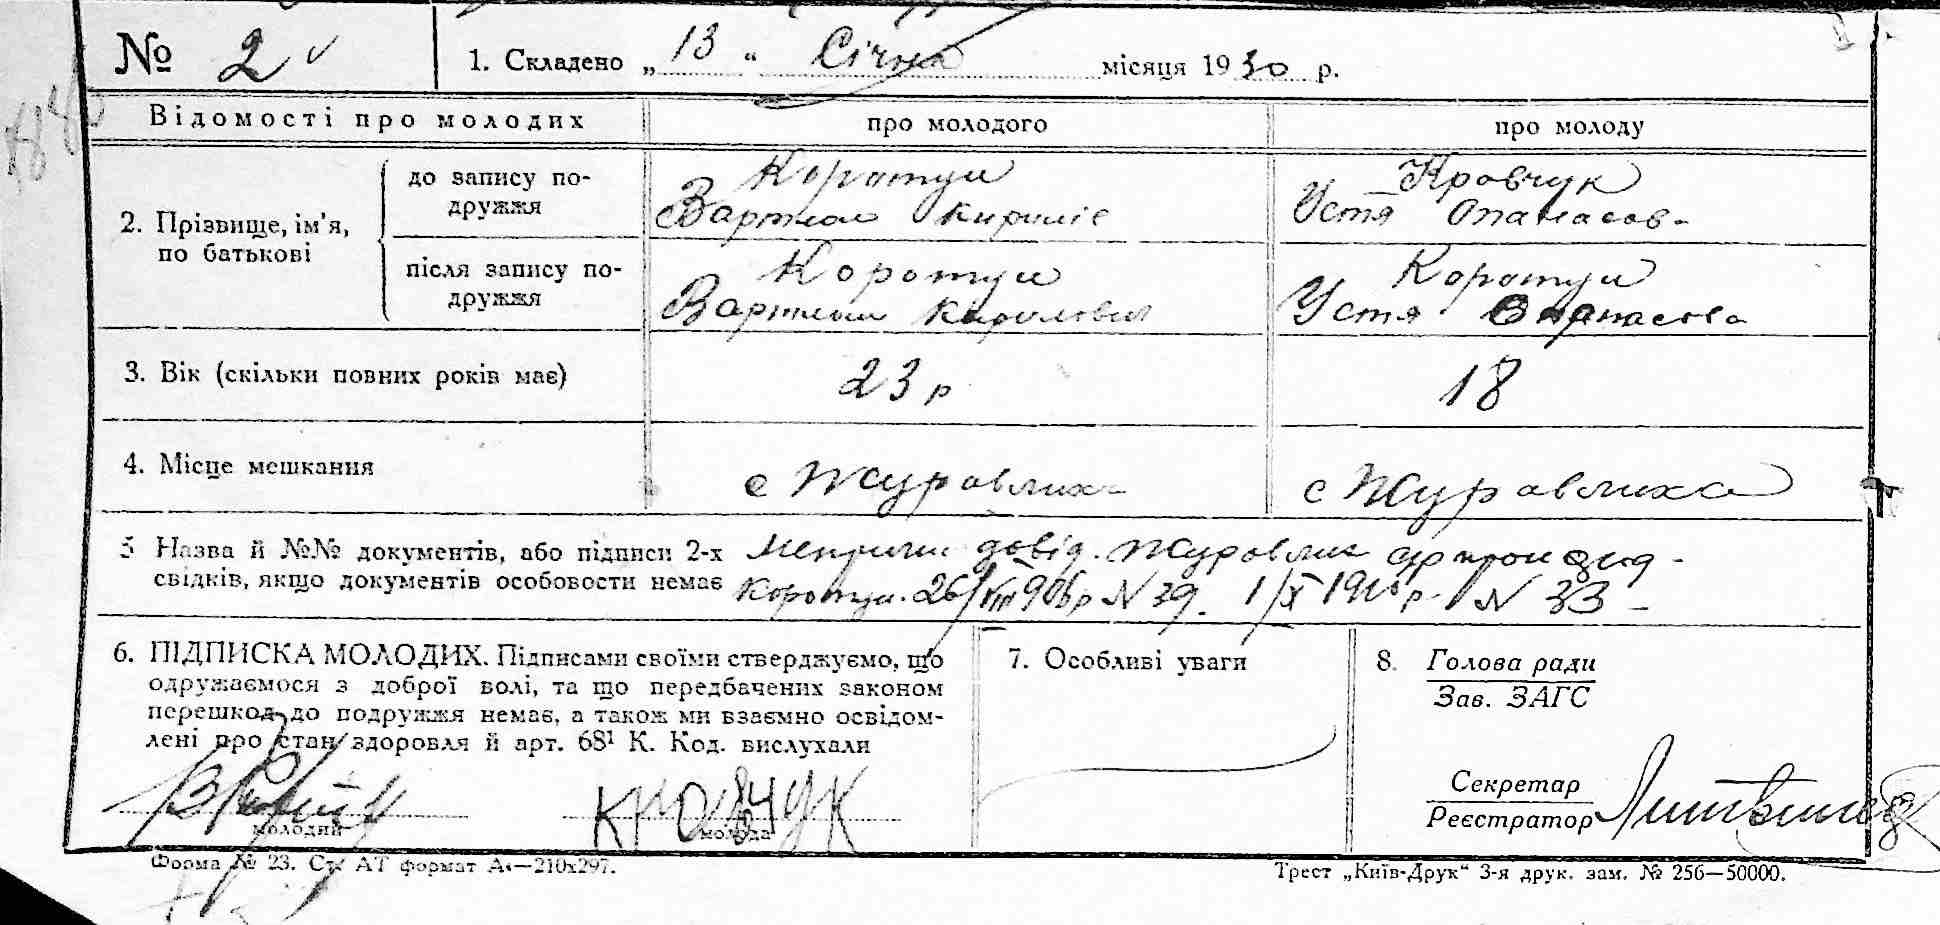 № 2
1. Складено „ 13 “ Січня місяця 1930 р.
Відомості про молодих
про молодого
про молоду
2. Прізвище, ім'я, по батькові
до запису по-
дружжя
Коротун
Вартлом Кирилів
Кравчук
Устя Опанасов-
після запису по-
дружжя
Коротун
Кирилович
Коротун
Устя Опанасова
3. Вік (скільки повних років має)
23 р
18
4. Місце мешкання
с Журавлиха
с Журавлиха
5 Назва й №№ документів, або підписи 2-х
свідків, якщо документів особовости немає
Метричн довід. Журавлих
Коротун. 26/VIII 906 р N 39. 1/X 191 р. N 33 –
6. ПІДПИСКА МОЛОДИХ. Підписами своїми стверджуємо, що
одружаємося з доброї волі, та що передбачених законом
перешкод до подружжя немає, а також ми взаємно освідом-
лені про стан здоровля й арт. 68¹ К. Код. вислухали
молодий
кравчук
молода
7. Особливі уваги
8. Голова ради
Зав. ЗАГС
Секретар
Реєстратор
Форма № 23. Ст. АТ формат А₄—210х297.
Трест „Київ-Друк“ 3-я друк. зам. № 256—50000.